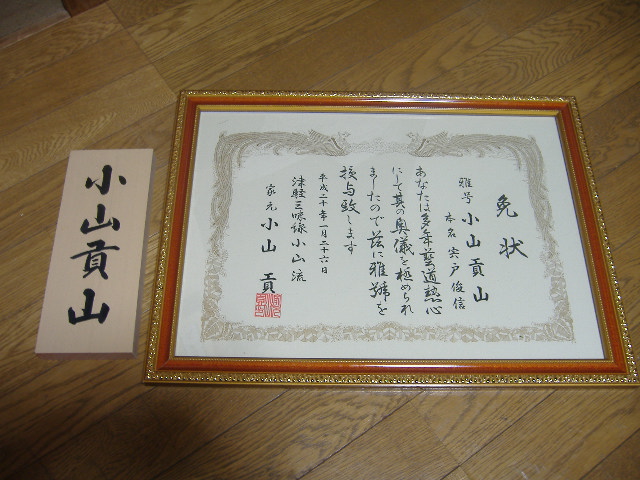 小山貢山
免状
雅号 小山貢山
本名 宍戸俊信
あなたは多年藝道熱心
にして其の奥儀を極められ
ましたので茲に雅号を
授与致します
平成二十年一月二十六日
津軽三味線小山流
家元 小山 貢